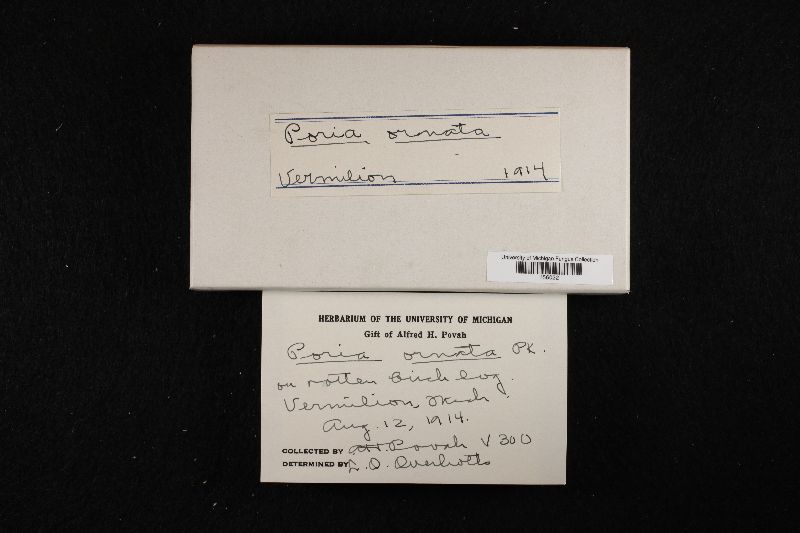 Poria ornata
Vermilion 1914
University of Michigan Fungus Collection
HERBARIUM OF THE UNIVERSITY OF MICHIGAN
Gift of Alfred H. Povah
Poria ornata Pk.
on rotten birch log.
Vermilion, Mich.
Aug. 12, 1914.
COLLECTED BY A.H. Povah V 300
DETERMINED BY L. O. Overholts